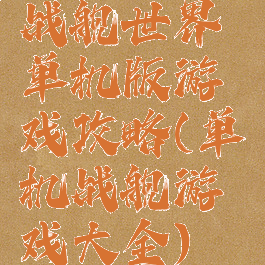 战舰世界
单机版游
戏攻略(单
机战舰游
戏大全)